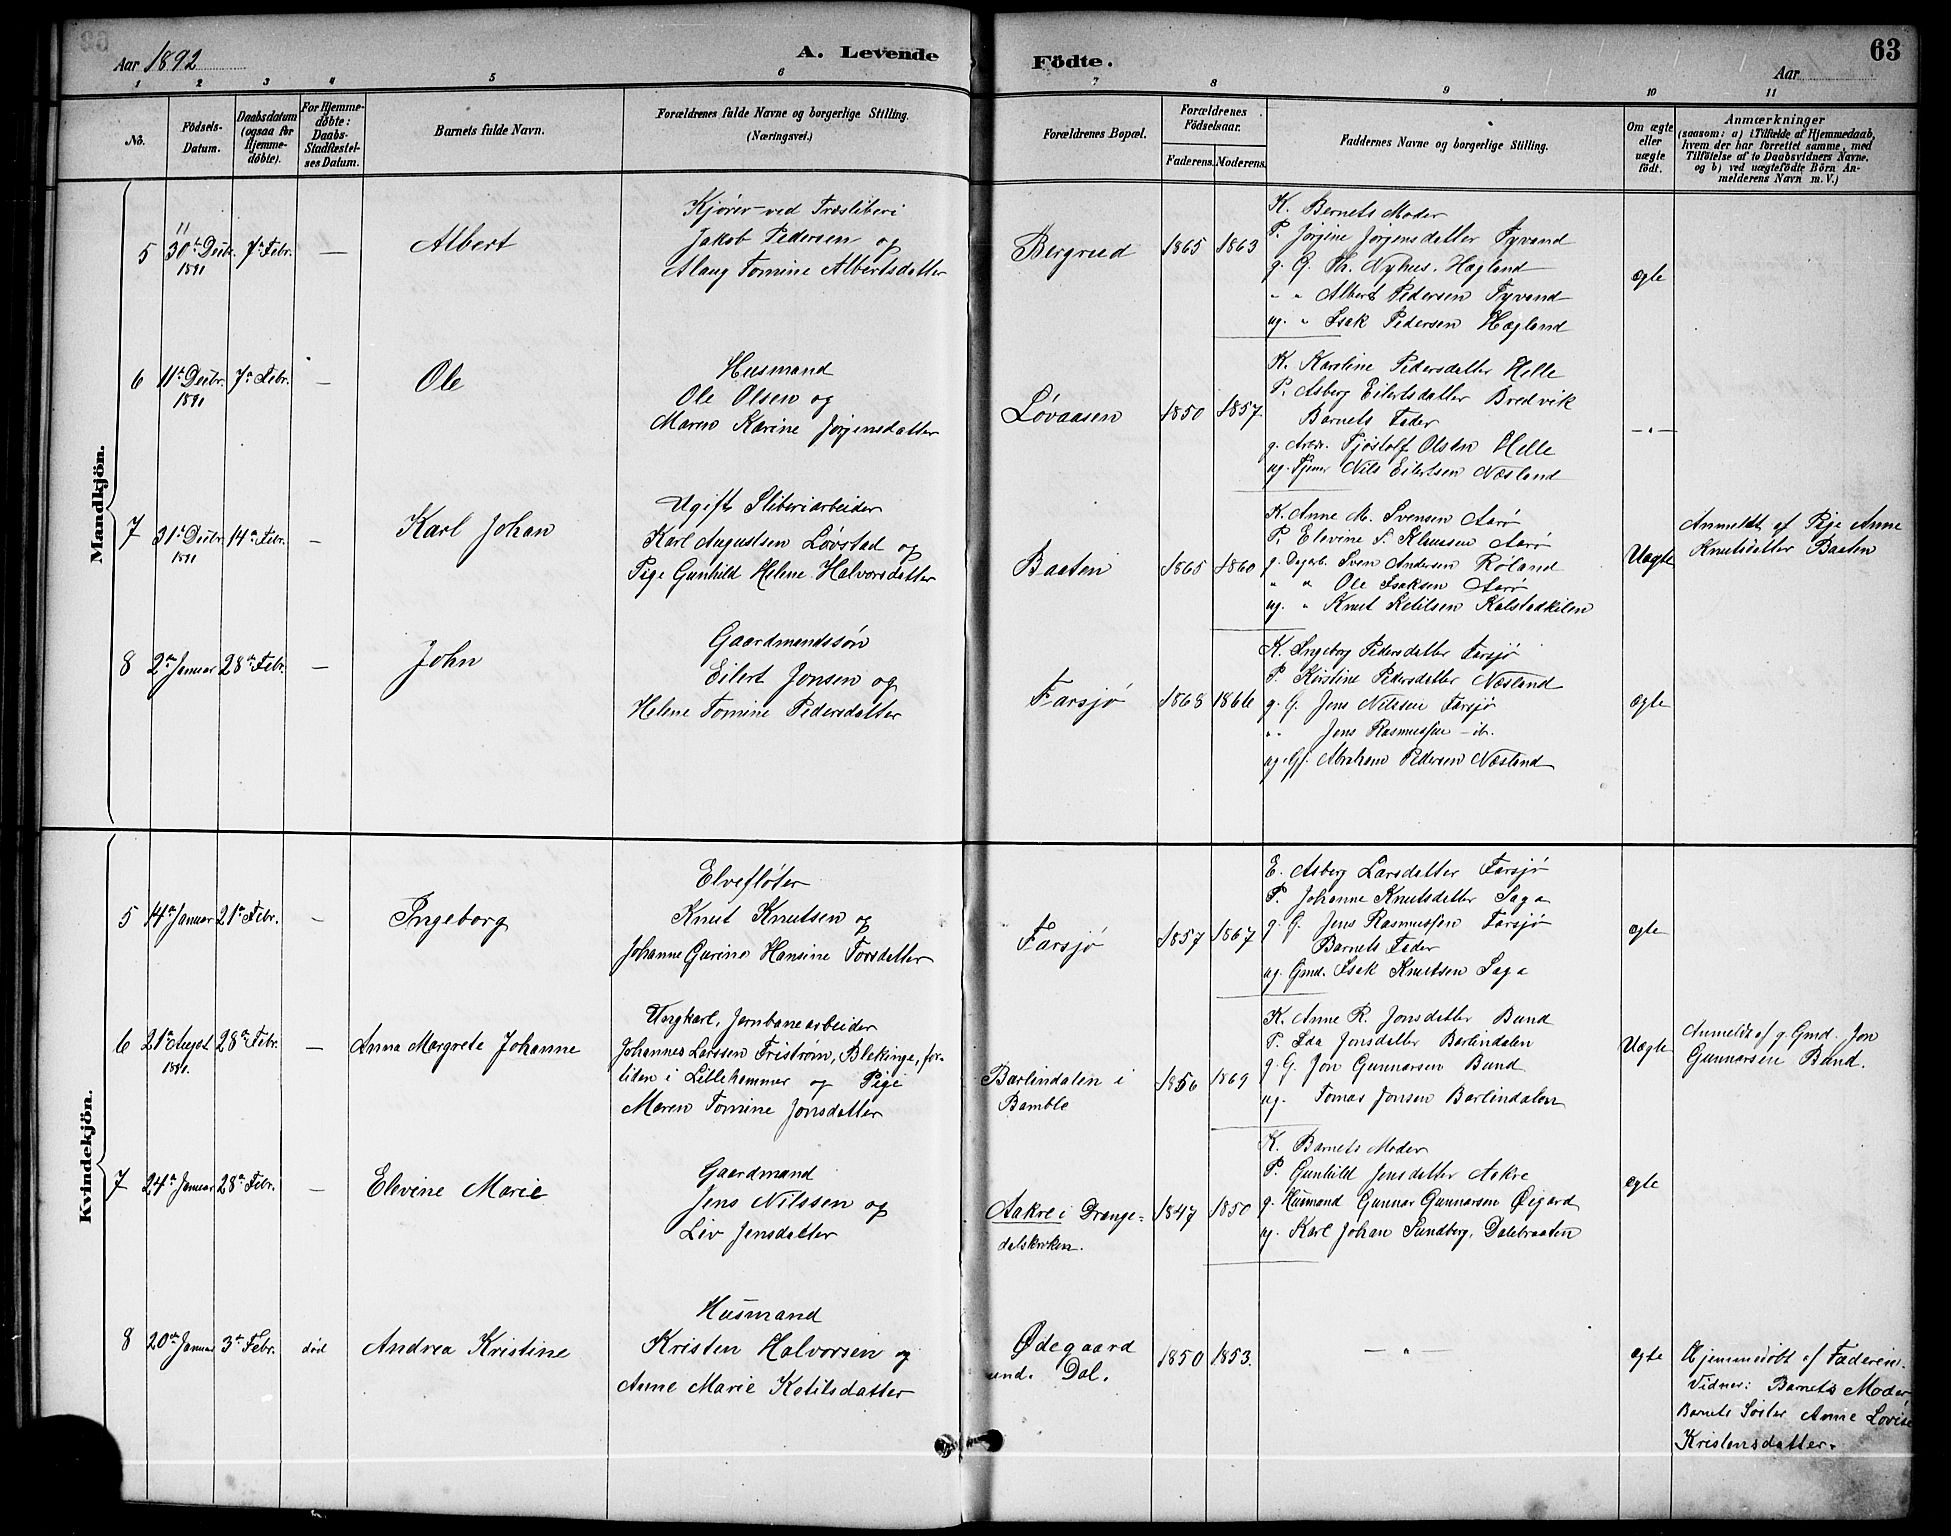 Aar 1892
A. Levende
Födte.
Aar
63
1 2 3 4 5 6 7 8 9 10 11
No.
Födsels-
Datum.
Daabsdatum
(ogsaa for
Hjemme-
döbte).
For Hjemme-
døbte:
Daabs-
Stadfæstel-
ses Datum.
Barnets fulde Navn.
Forældrenes fulde Navne og borgerlige Stilling.
(Næringsvei.)
Forældrenes Bopæl.
Forældrenes
Födselsaar.
Faderens. Moderens.
Faddernes Navne og borgerlige Stilling.
Om ægte
eller
uægte
födt.
Anmærkninger
(saasom: a) i Tilfælde af Hjemmedaab,
hvem der har forrettet samme, med
Tilföielse af to Daabsvidners Navne.
og b) ved uægtefödte Börn An-
melderens Navn m. V.)
Mandkjön.
5
11
30te Decbr.
1891
7de Febr.
—
Albert
Kjører ved Træsliberi
Jakob Pedersen og
Alaug Tomine Albertsdatter
Bergrud
1865
1863
K. Barnets Moder
P. Jørgine Jørgensdatter Tyvand
g. G. Th. Nyhus. Hægland
" " Albert Pedersen Tyvand
ug. " Isak Pedersen Hægland
ægte
6
11te Decbr.
1891
7de Febr.
—
Ole
Husmand
Ole Olsen og
Maren Karine Jørgensdatter
Løvaasen
1850
1857
K. Karoline Pedersdatter Helle
P. Asberg Eilertsdatter Bredvik
Barnets Fader
g. Arb. Tjøstolf Olsen Helle
ug. Tjener Nils Eilertsen Næsland
— " —
7
31te Decbr.
1891
14de Febr.
—
Karl Johan
Ugift Sliberiarbeider
Karl Augustsen Løvstad og
Pige Gunhild Helene Halvorsdatter
Baaten
1865
1860
K. Anne M. Svensen Aarø
P. Elevine S. Klausen Aarø
g. Dagarb. Sven Andersen Røland
" " Ole Isaksen Aarø
ug. " Knut Ketilsen Kalstadkilen
Uægte
Anmeldt af Pige Anne
Knutsdatter Baaten
8
2den Januar
28de Febr.
—
John
Gaardmandssøn
Eilert Jonsen og
Helene Tomine Pedersdatter
Farsjø
1868
1866
K. Ingeborg Pedersdatter Farsjø
P. Kirstine Pedersdatter Næsland
g. G. Jens Nilssen Farsjø
" " Jens Rasmussen — ib.
ug. Gf. Abraham Pedersen Næsland
ægte
Kvindekjön.
5
14de Januar
21de Febr.
—
Ingeborg
Elvefløter
Knut Knutsen og
Johanne Gurine Hansine Torsdatter
Farsjø
1857
1867
E. Asberg Larsdatter Farsjø
P. Johanne Knutsdatter Saga
g. G. Jens Rasmussen Farsjø
Barnets Fader
ug. Gmd. Isak Knutsen Saga
ægte
6
21de August
1891.
28de Febr.
—
Anna Margrete Johanne
Ungkarl, Jernbanearbeider
Johannes Larssen Friström, Blekinge, for-
tiden i Lillehammer og Pige
Maren Tomine Jonsdatter
Barlindalen i
Bamble
1856
1869
K. Anne R. Jonsdatter Bund
P. Ida Jonsdatter Barlindalen
g. G. Jon Gunnarsen Bund
ug. Tomas Jonsen Barlindalen
Uægte
Anmeldt af g. Gmd. Jon
Gunnarsen Bund.
7
24de Januar
28de Febr.
—
Elevine Marie
Gaardmand
Jens Nilssen og
Liv Jensdatter
Aakre i Drange-
dalskroken.
1847
1850
K. Barnets Moder
P. Gunhild Jensdatter Aakre
g. Husmand Gunnar Gunnarsen Øigard
ug. Karl Johan Sundberg, Dalebraaten
ægte
8
20de Januar
3die Febr.
død
Andrea Kristine
Husmand
Kristen Halvorsen og
Anne Marie Ketilsdatter
Ødegaard
und. Dal.
1850
1853.
— " —
ægte
Hjemmedøbt af Faderen.
Vidner: Barnets Moder
Barnets Søster Anne Lovise
Kristensdatter.